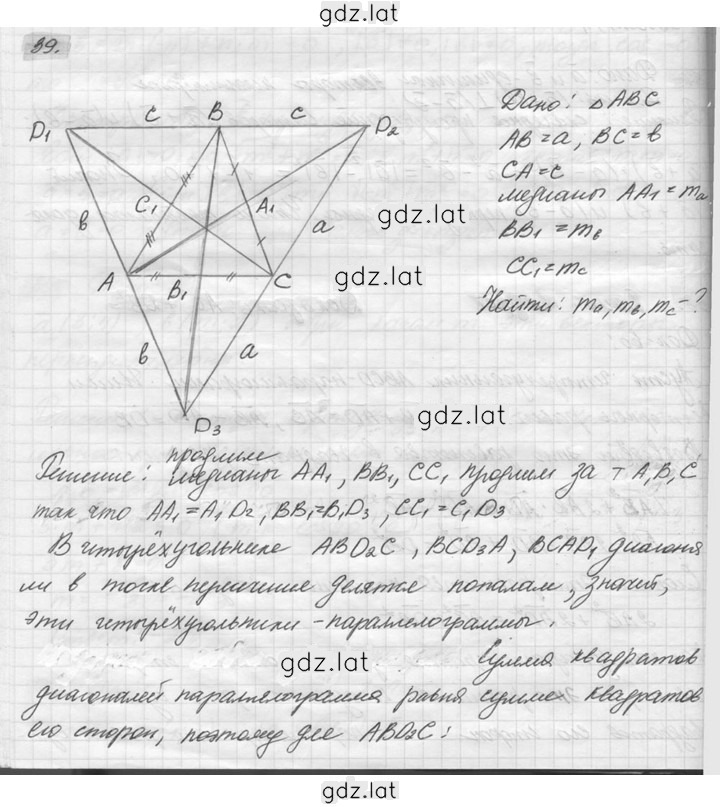 gdz.lat
39.
D₁ c B c D₂
b C₁ A₁ a
A B₁ C
b a
D₃
Дано: △ABC
AB = a, BC = b
CA = c
медианы AA₁ = mₐ
BB₁ = m_b
CC₁ = m_c
Найти: mₐ, m_b, m_c - ?
gdz.lat
gdz.lat
gdz.lat
продлим
Решение: медианы AA₁, BB₁, CC₁ продлим за т A, B, C
так что AA₁ = A₁D₂, BB₁ = B₁D₃, CC₁ = C₁D₃
В четырёхугольнике ABD₂C, BCD₃A, BCAD₁ диагона
ли в точке пересечние делятся пополам, значит,
эти четырёхугольники - параллелограммы.
gdz.lat
Сумма квадратов
диагоналей параллелограмма равна сумме квадратов
его сторон, поэтому для ABD₂C:
gdz.lat